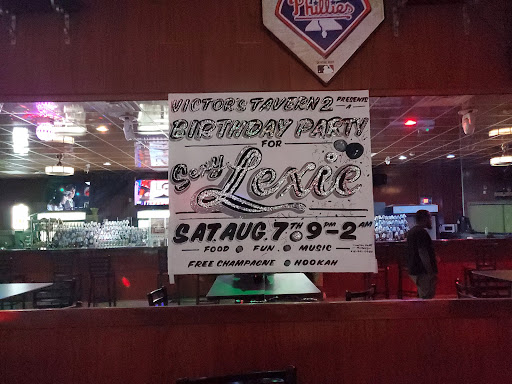 Phillies
VICTOR'S TAVERN 2 PRESENTS
A
BIRTHDAY PARTY
FOR
Sexy Lexie
SAT. AUG. 7TH 9PM-2AM
FOOD FUN MUSIC
FREE CHAMPAGNE HOOKAH